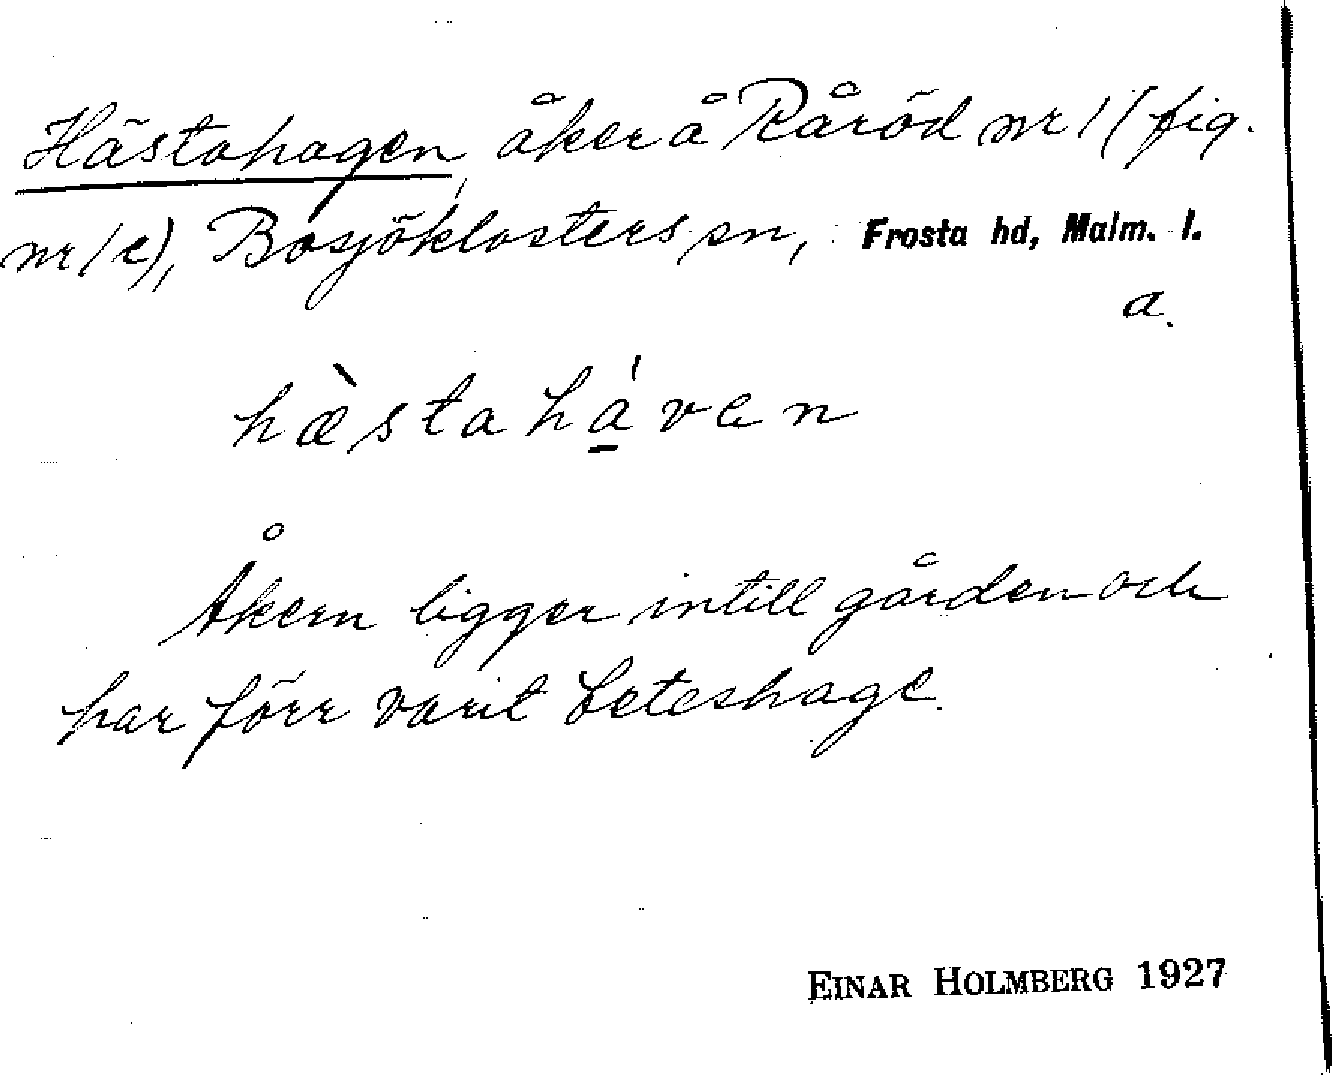 Hästahagen, åker å Råröd nr 1 (fig.
nr 1 c), Bosjöklosters sn, Frosta hd, Malm. l.
a.
hæ̀stahá̱ven
Åkern ligger intill gården och
har förr varit beteshage.
EINAR HOLMBERG 1927